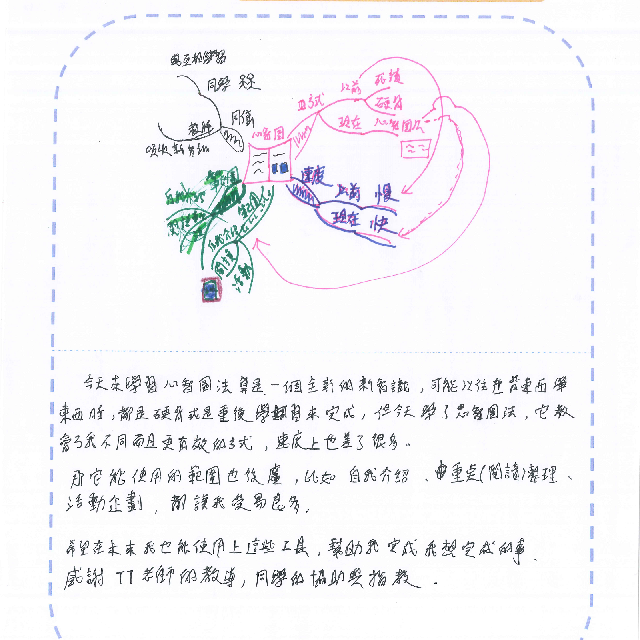 與互相學習
同學
教師
同儕
吸收新
心智圖
方式
以前
死讀
硬背
現在
心智圖法
速度
以前 慢
現在 快
自我介紹
閱讀
活動
今天來學習心智圖法算是一個全新的新知識，可能以往在背東西學
東西時，都是硬背或是重複學習來完成，但今天學了心智圖法，它教
會了我不同而且更有效的方式，速度上也差了很多。
那它能使用的範圍也很廣，比如 自我介紹、重点(閱讀)整理、
活動企劃，都讓我受易良多，
希望在未來我也能使用上這些工具，幫助我完成我想完成的事、
感謝 TT老師的教導，同學的協助與指教．